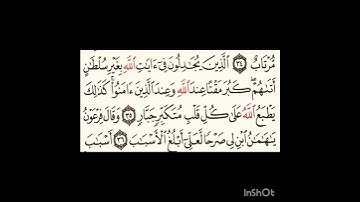 مُّرْتَابٌ ٣٤ ٱلَّذِينَ يُجَٰدِلُونَ فِىٓ ءَايَٰتِ ٱللَّهِ بِغَيْرِ سُلْطَٰنٍ
أَتَىٰهُمْ ۖ كَبُرَ مَقْتًا عِندَ ٱللَّهِ وَعِندَ ٱلَّذِينَ ءَامَنُوا۟ ۚ كَذَٰلِكَ
يَطْبَعُ ٱللَّهُ عَلَىٰ كُلِّ قَلْبِ مُتَكَبِّرٍ جَبَّارٍ ٣٥ وَقَالَ فِرْعَوْنُ
يَٰهَٰمَٰنُ ٱبْنِ لِى صَرْحًا لَّعَلِّىٓ أَبْلُغُ ٱلْأَسْبَٰبَ ٣٦ أَسْبَٰبَ
InShOt